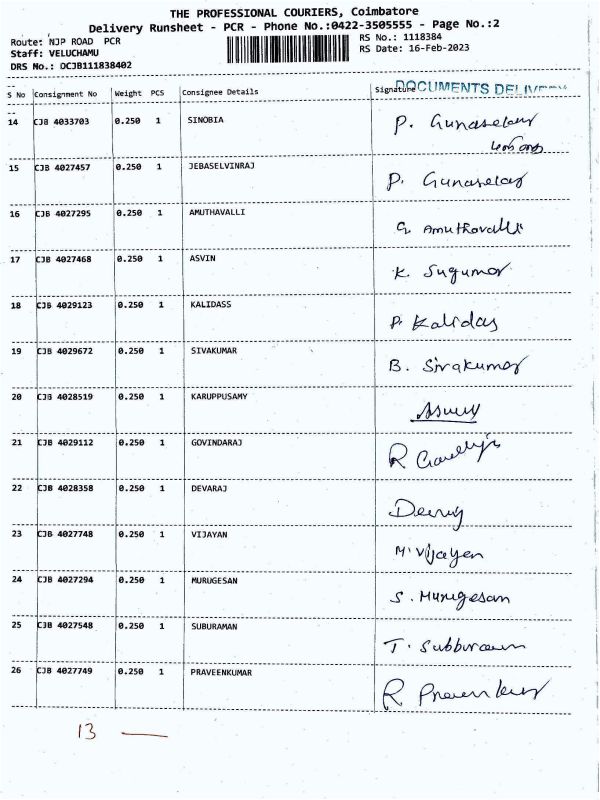 THE PROFESSIONAL COURIERS, Coimbatore
Delivery Runsheet - PCR - Phone No.:0422-3505555 - Page No.:2
Route: NJP ROAD PCR RS No.: 1118384
Staff: VELUCHAMU RS Date: 16-Feb-2023
DRS No.: DCJB111838402
S No Consignment No Weight PCS Consignee Details Signature DOCUMENTS DELIVERY
14 CJB 4033703 0.250 1 SINOBIA P. Gunaselan
15 CJB 4027457 0.250 1 JEBASELVINRAJ P. Gunaselan
16 CJB 4027295 0.250 1 AMUTHAVALLI G. Amuthavalli
17 CJB 4027468 0.250 1 ASVIN K. Sugumar
18 CJB 4029123 0.250 1 KALIDASS P. Kalidas
19 CJB 4029672 0.250 1 SIVAKUMAR B. Sivakumar
20 CJB 4028519 0.250 1 KARUPPUSAMY
21 CJB 4029112 0.250 1 GOVINDARAJ R
22 CJB 4028358 0.250 1 DEVARAJ
23 CJB 4027748 0.250 1 VIJAYAN M. Vijayen
24 CJB 4027294 0.250 1 MURUGESAN S. Murugesan
25 CJB 4027548 0.250 1 SUBURAMAN T. Subburam
26 CJB 4027749 0.250 1 PRAVEENKUMAR R Praveenkumar
13 —